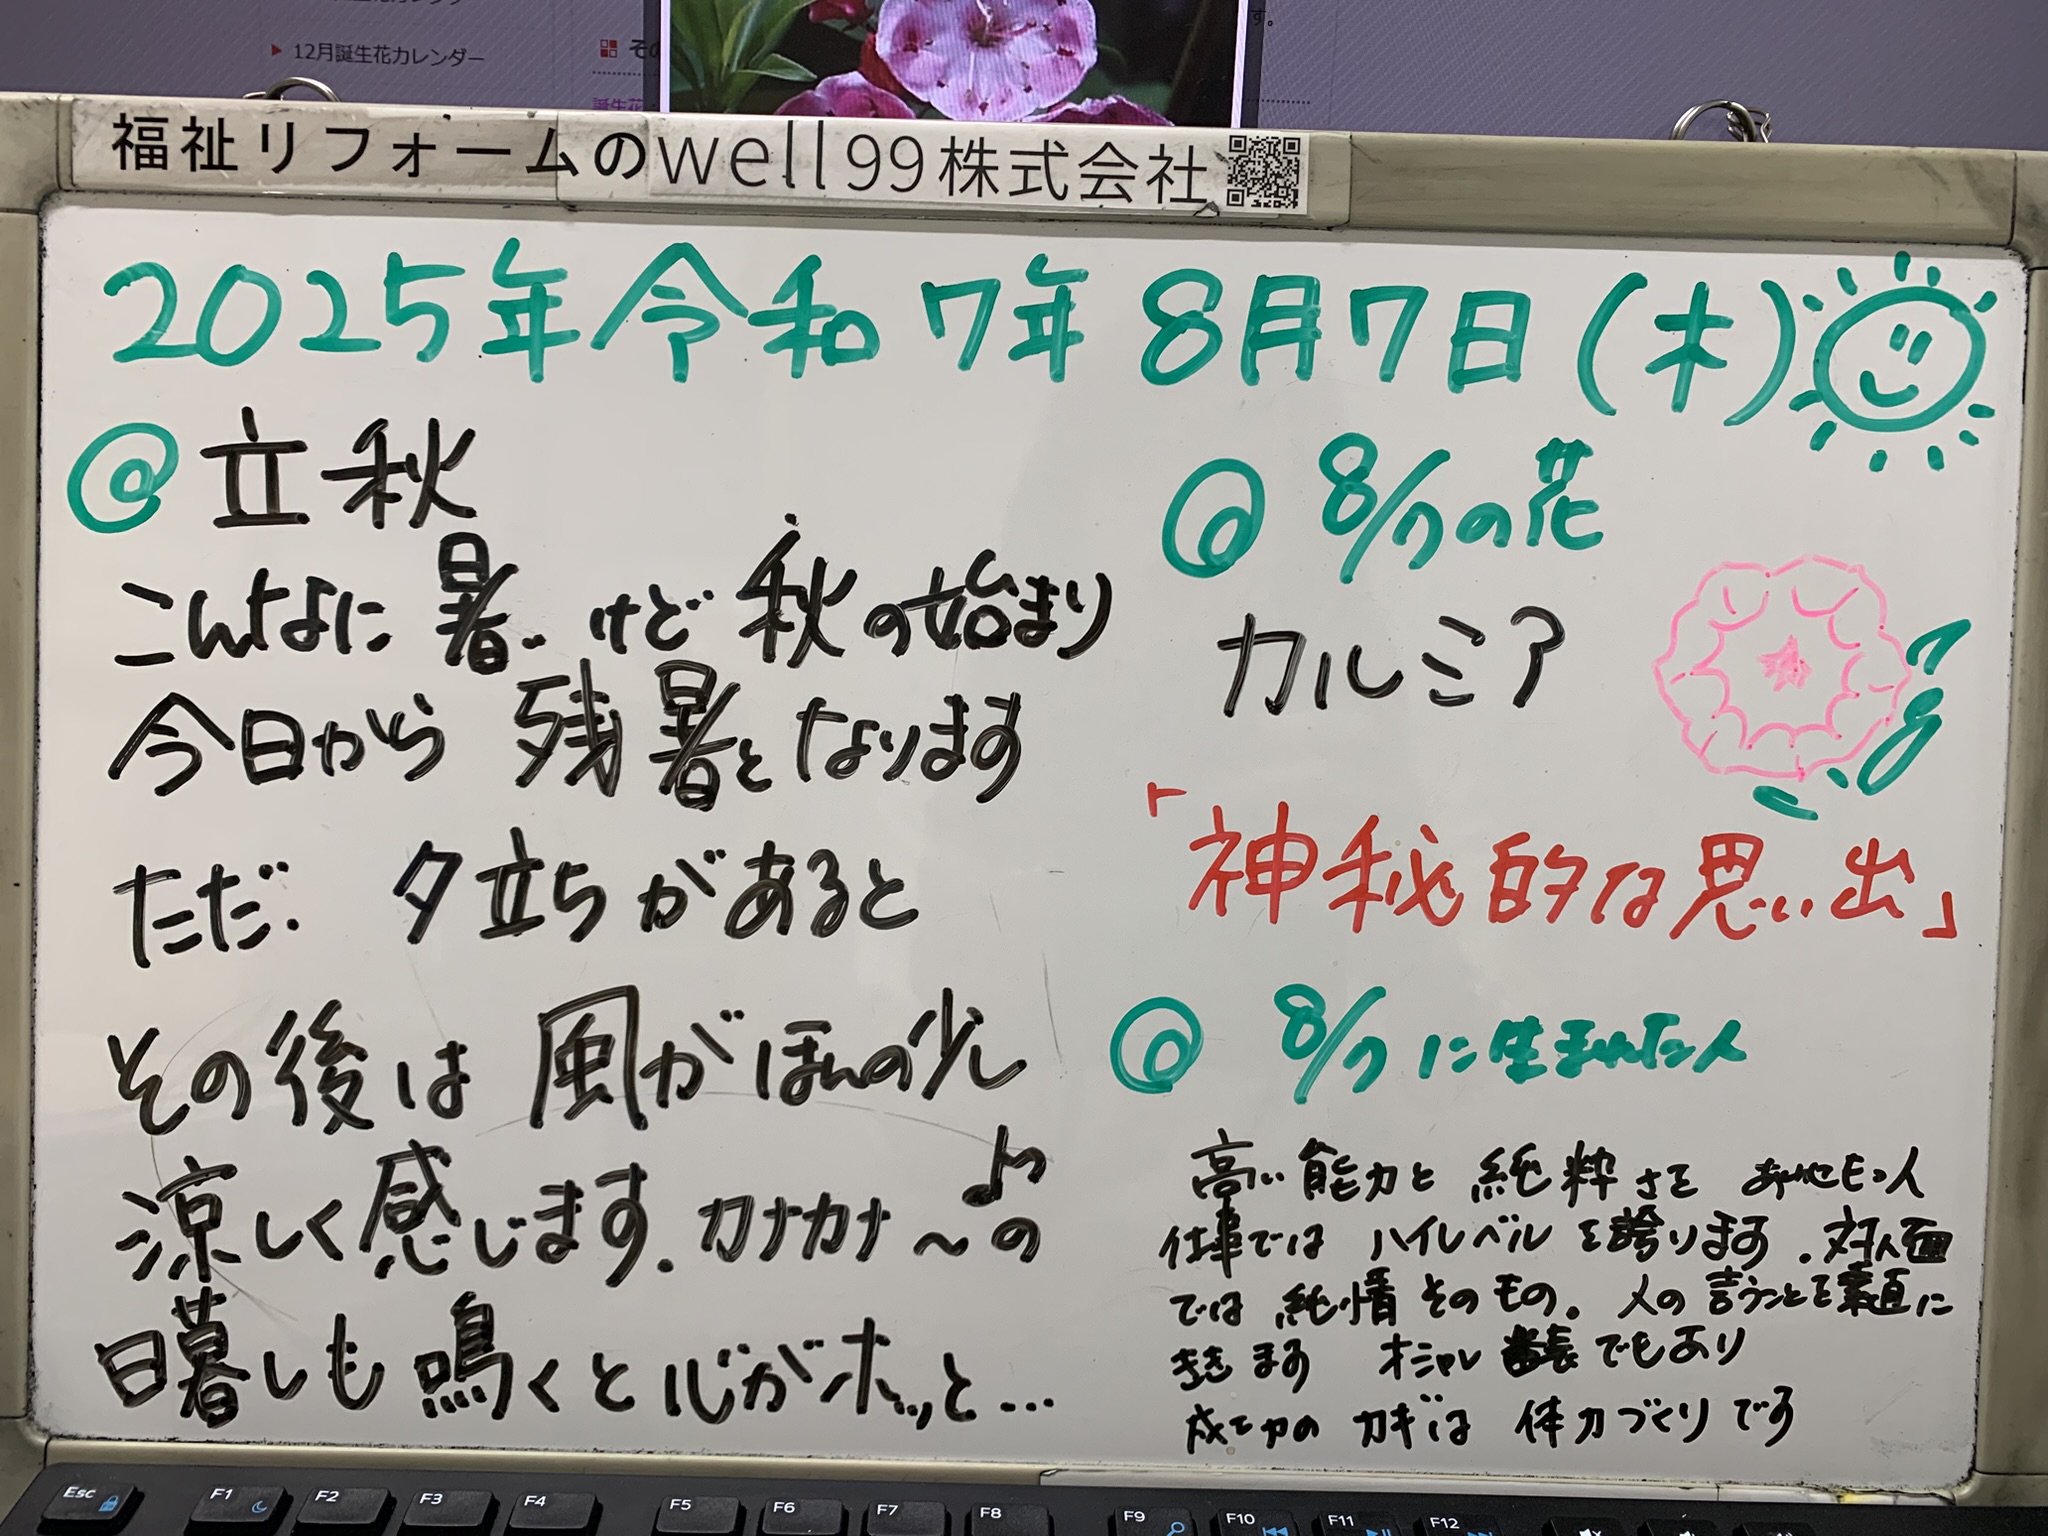 12月誕生花カレンダー
その
誕生花
す。
福祉リフォームのwell99株式会社
2025年令和7年8月7日(木)
@立秋
こんなに暑いけど秋の始まり
今日から残暑となります
ただ、夕立ちがあると
その後は風がほんの少し
涼しく感じます.カナカナ〜♪の
日暮しも鳴くと心がホッと…
@8/7の花
カルミア
「神秘的な思い出」
@8/7に生まれた人
高い能力と純粋さをあわせもつ人
仕事ではハイレベルを誇ります.対人面
では純情そのもの。人の言うことを素直に
ききます オシャレ でもあり
成功のカギは体力づくりです
Esc
F1
F2
F3
F4
F5
F6
F7
F8
F9
F10
F11
F12